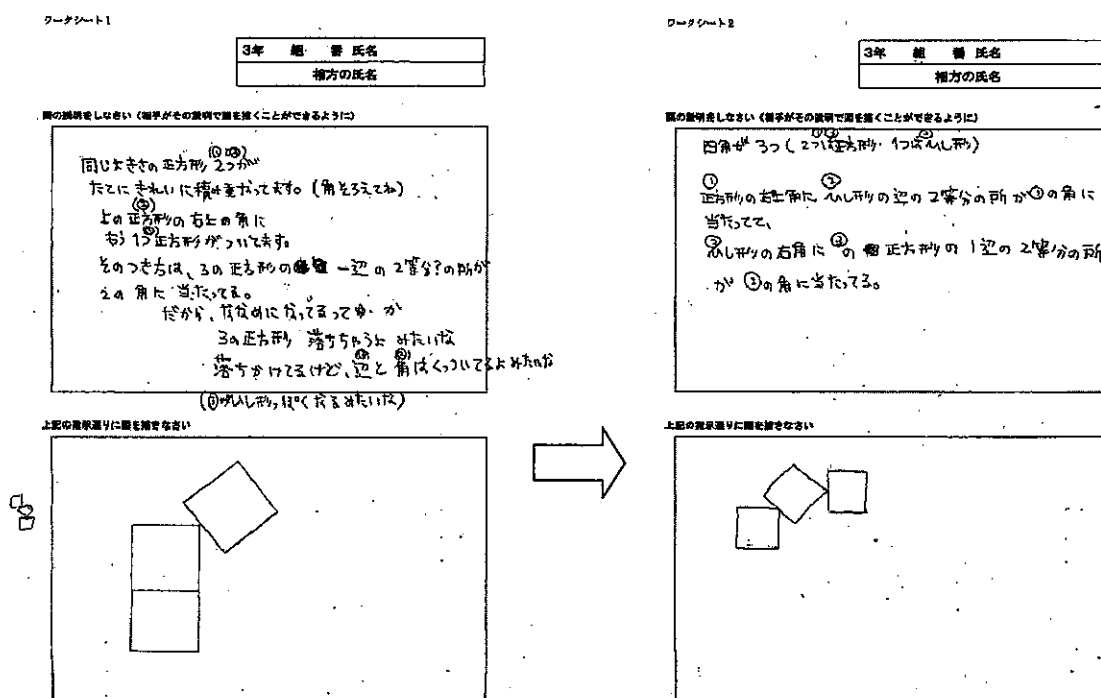 ワークシート1
3年 組 番 氏名
相方の氏名
図の説明をしなさい(相手がその説明で図を描くことができるように)
同じ大きさの正方形 2つが
たてに きれいに積み重なってます。(角そろえてね)
上の正方形の右上の角に
もう1つ正方形がついてます。
そのつき方は、3の正方形の 一辺の2等分?の所が
2の角に当たってる。
だから、ななめになってるってゆーか
3の正方形 落ちちゃうよ みたいな
落ちかけてるけど、辺と角はくっついてるよみたいな
(③がひし形っぽくなるみたいな)
上記の指示通りに図を描きなさい
ワークシート2
3年 組 番 氏名
相方の氏名
図の説明をしなさい(相手がその説明で図を描くことができるように)
四角が 3つ(2つは正方形・1つはひし形)
①正方形の右上角に、②ひし形の辺の2等分の所が①の角に
当たってて、
②ひし形の右角に③の 正方形の1辺の2等分の所
が②の角に当たってる。
上記の指示通りに図を描きなさい